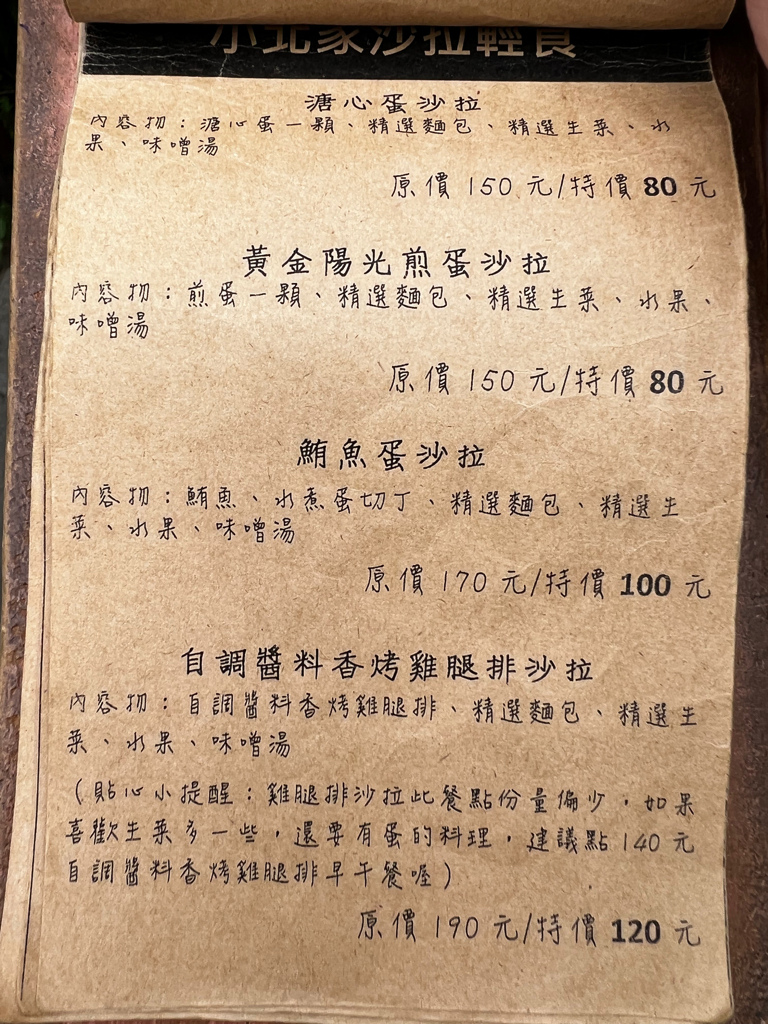 小北家沙拉輕食
溏心蛋沙拉
內容物：溏心蛋一顆、精選麵包、精選生菜、水
果、味噌湯
原價 150 元/特價 80 元
黃金陽光煎蛋沙拉
內容物：煎蛋一顆、精選麵包、精選生菜、水果、
味噌湯
原價 150 元/特價 80 元
鮪魚蛋沙拉
內容物：鮪魚、水煮蛋切丁、精選麵包、精選生
菜、水果、味噌湯
原價 170 元/特價 100 元
自調醬料香烤雞腿排沙拉
內容物：自調醬料香烤雞腿排、精選麵包、精選生
菜、水果、味噌湯
（貼心小提醒：雞腿排沙拉此餐點份量偏少，如果
喜歡生菜多一些，還要有蛋的料理，建議點 140 元
自調醬料香烤雞腿排早午餐喔）
原價 190 元/特價 120 元